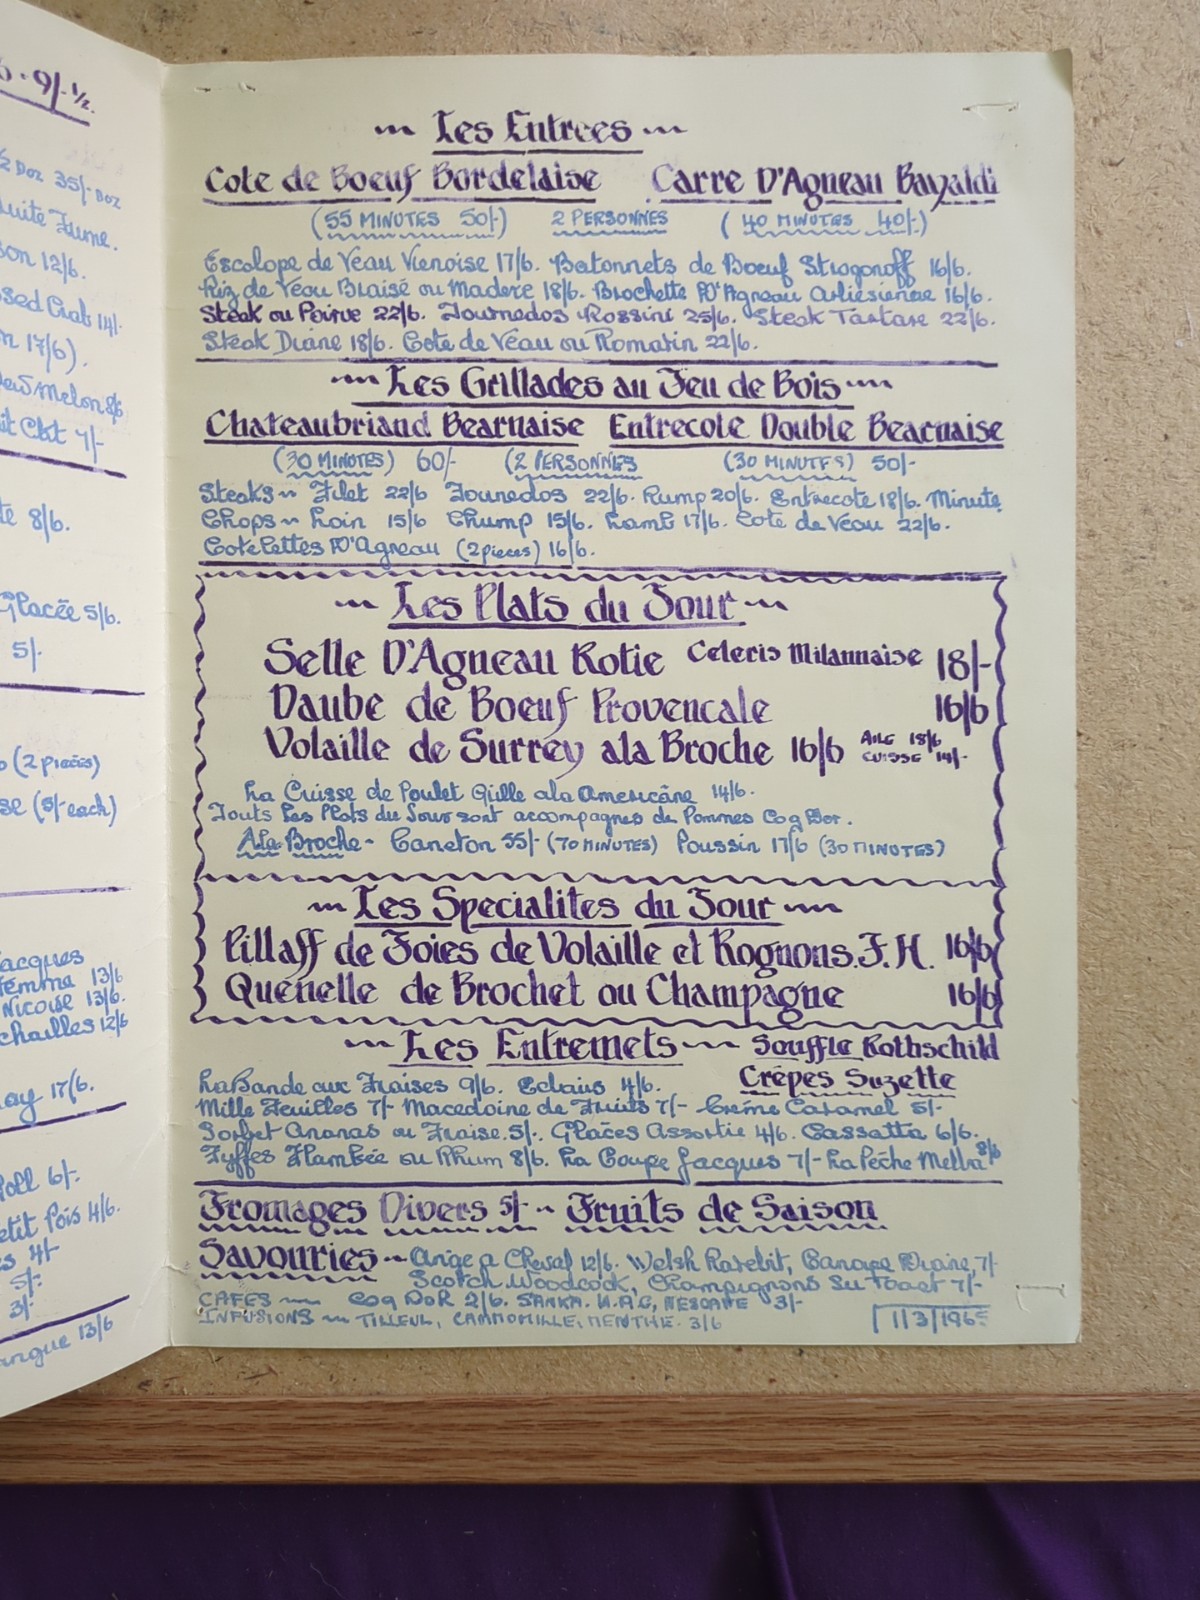 9/-½.
½ Doz 35/- Doz
Fume.
son 12/6.
Crab 14/-
17/6).
Melon 8/6
Ckt 7/-
8/6.
Glacée 5/6.
5/-
(2 pieces)
(5/- each)
acques
femme 13/6
Nicoise 13/6.
12/6
17/6.
Roll 6/-
Petit Pois 4/6.
4/-
5/-
3/-
13/6
~ Les Entrees ~
Cote de Boeuf Bordelaise Carre D'Agneau Bayaldi
(55 MINUTES 50/-) 2 PERSONNES (40 MINUTES 40/-)
Escalope de Veau Vienoise 17/6. Batonnets de Boeuf Strogonoff 16/6.
Riz de Veau Braisé ou Madere 18/6. Brochette D'Agneau Arlesienne 16/6.
Steak ou Poivre 22/6. Tournedos Rossini 25/6. Steak Tartare 22/6.
Steak Diane 18/6. Cote de Veau ou Romarin 22/6.
~ Les Grillades au Feu de Bois ~
Chateaubriand Bearnaise Entrecote Double Bearnaise
(30 MINUTES) 60/- (2 PERSONNES (30 MINUTES) 50/-
Steaks ~ Filet 22/6 Tounedos 22/6. Rump 20/6. Entrecote 18/6. Minute
Chops ~ Loin 15/6 Chump 15/6. Lamb 17/6. Cote de Veau 22/6.
Cotelettes D'Agneau (2 pieces) 16/6.
~ Les Plats du Jour ~
Selle D'Agneau Rotie Celeris Milannaise 18/-
Daube de Boeuf Provencale 16/6
Volaille de Surrey ala Broche 16/6 AILE 18/6
CUISSE 14/-
La Cuisse de Poulet Grille ala Americâne 14/6.
Touts Les Plats du Jour sont accompagnes de Pommes Coq Dor.
Ala Broche - Caneton 55/- (70 MINUTES) Poussin 17/6 (30 MINUTES)
~ Les Specialites du Jour ~
Pillaff de Foies de Volaille et Rognons. F. H. 16/6
Quenelle de Brochet ou Champagne 16/6
~ Les Entremets ~ Souffle Rothschild
Crêpes Suzette
La Bande aux Fraises 9/6. Eclairs 4/6.
Mille Feuilles 7/- Macedoine de Fruits 7/- Créme Caramel 5/-
Sorbet Ananas ou Fraise. 5/-. Glaces Assortie 4/6. Cassatta 6/6.
Fyffes Flambée ou Rhum 8/6. La Coupe Jacques 7/- La Pêche Melba 8/6
Fromages Divers 5/- ~ Fruits de Saison
Savouries ~ Ange a Cheval 12/6. Welsh Rarebit, Canape Diane, 7/-
Scotch Woodcock, Champignons Su Toast 7/-
CAFES ~ COQ DOR 2/6. SANKA. H.A.G, NESCAFE 3/-
INFUSIONS ~ TILLEUL, CAMMOMILLE, MENTHE. 3/6
1/3/1965